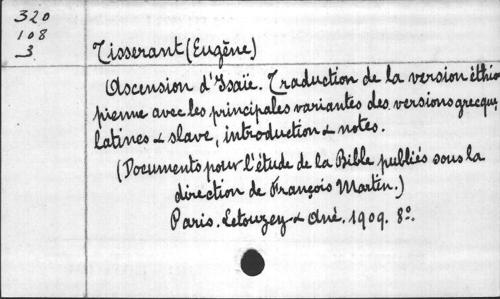 320
108
3
Tisserant (Eugène)
Ascension d'Isaïe. Traduction de la version éthio
pienne avec les principales variantes des versions grecque,
latines & slave, introduction & notes.
(Documents pour l'étude de la Bible publiés sous la
direction de François Martin.)
Paris. Letouzey & Ané. 1909. 8º.